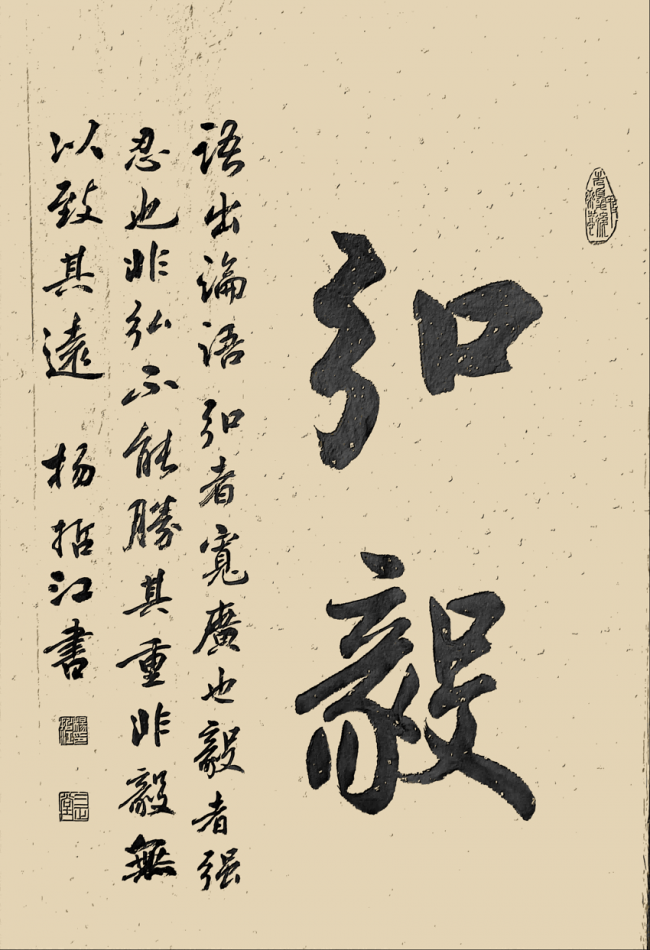 弘毅
語出論語弘者寬廣也毅者强
忍也非弘不能勝其重非毅無
以致其遠 杨哲江書